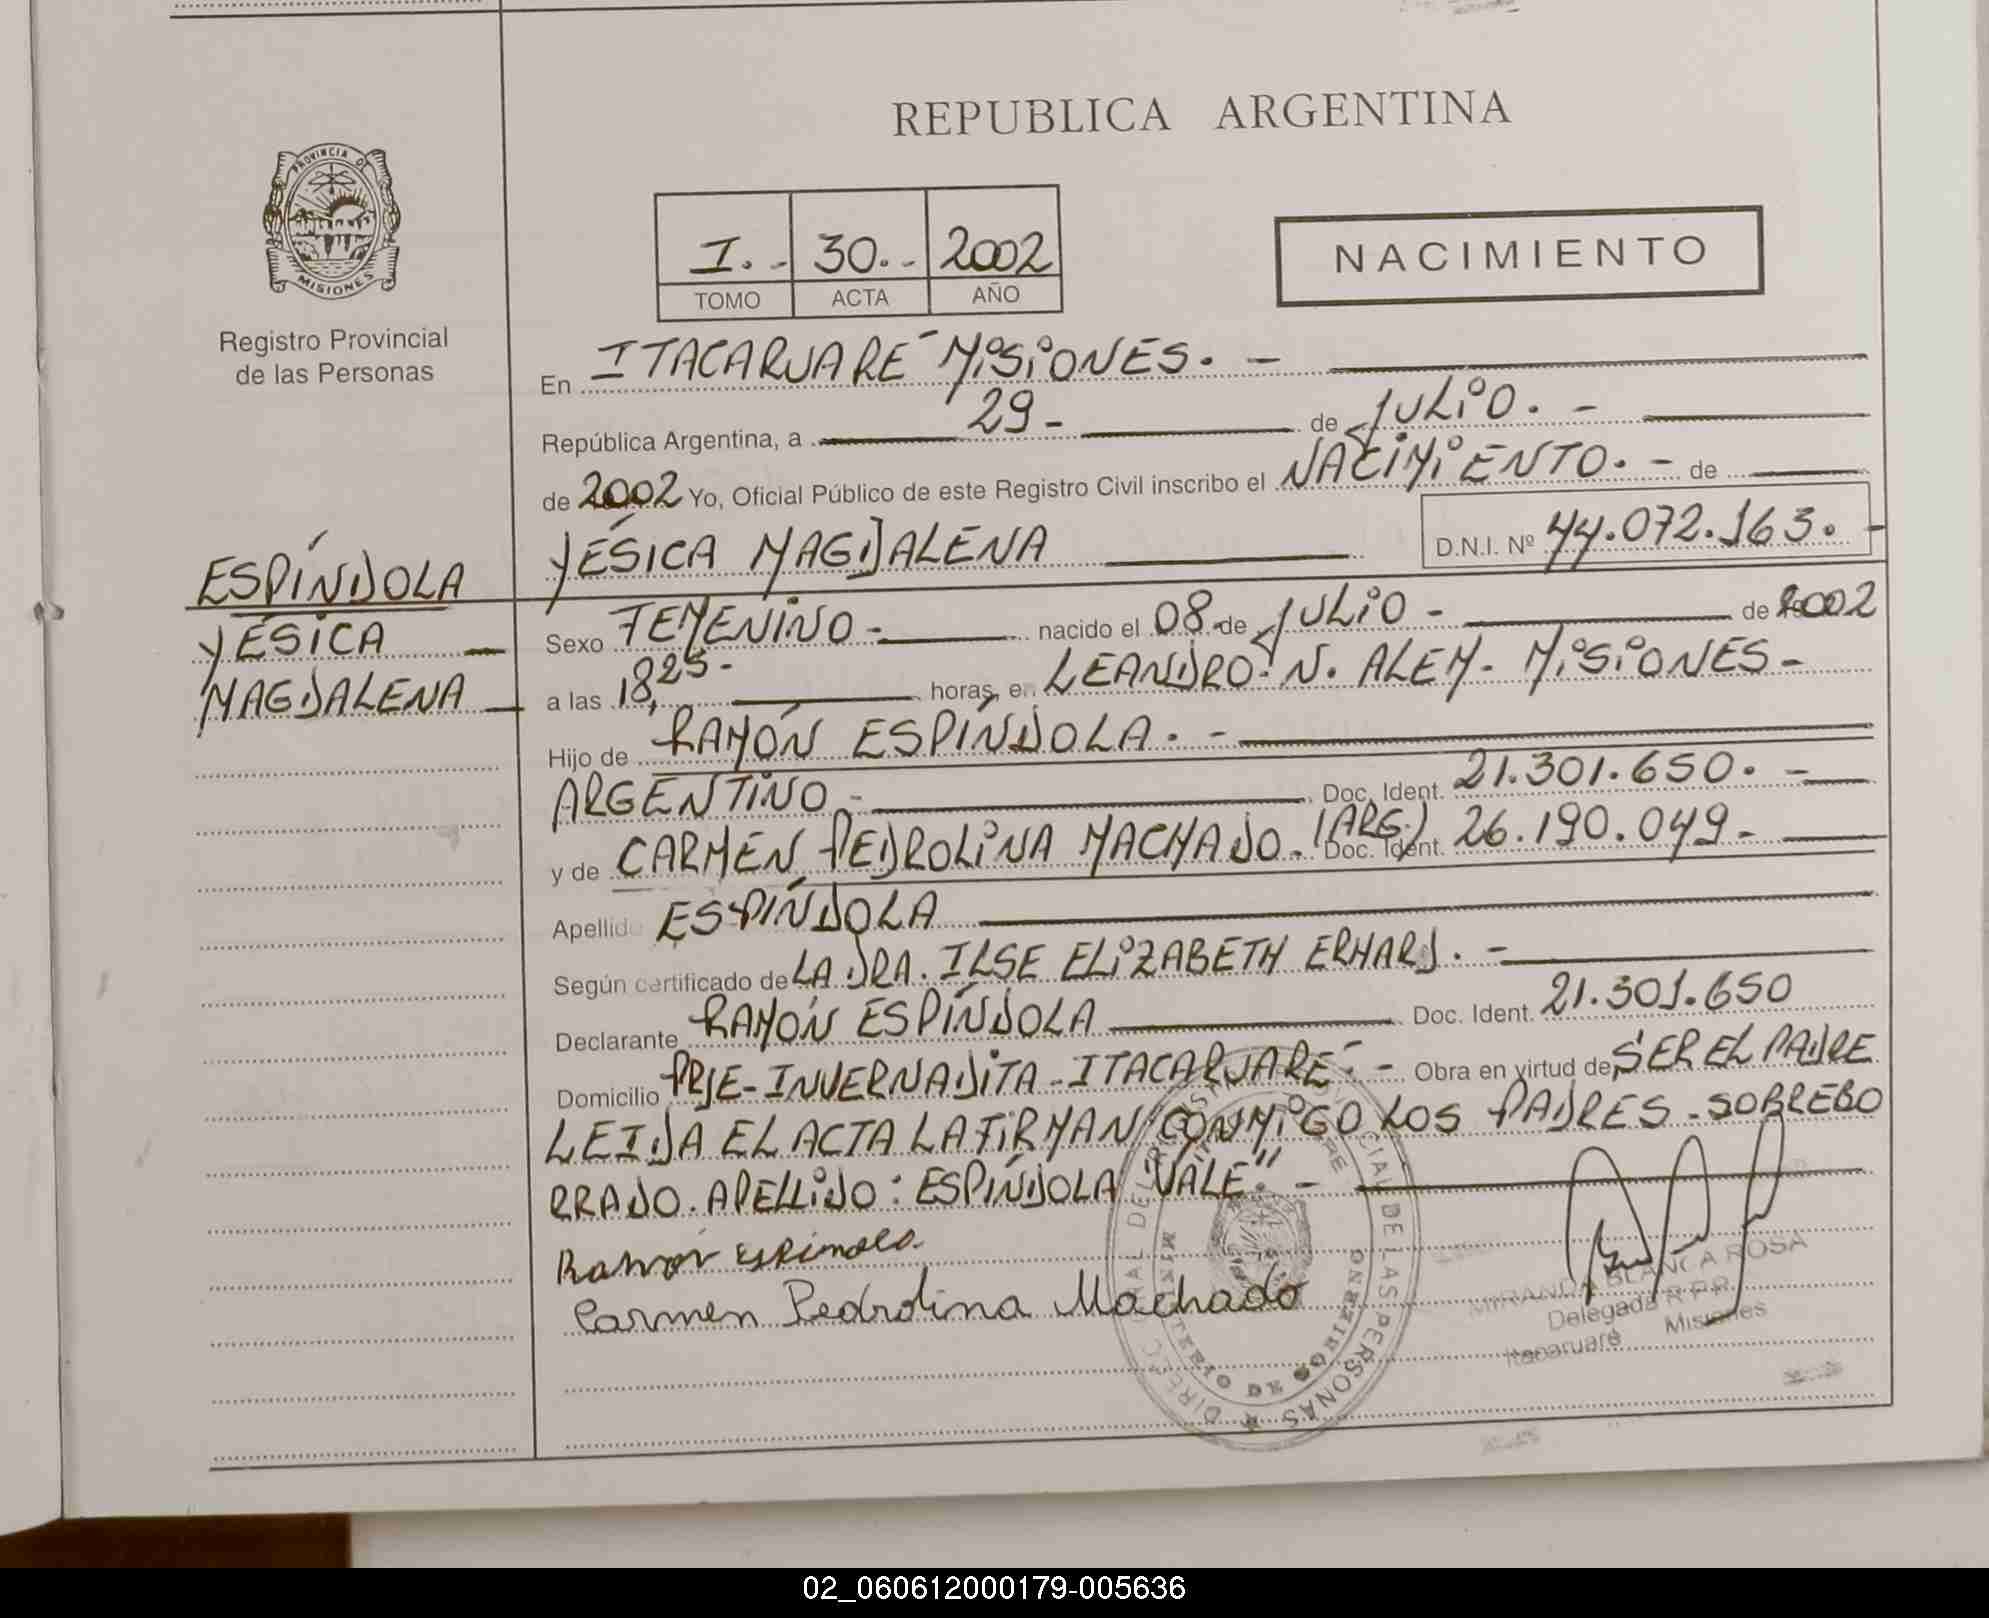 REPUBLICA ARGENTINA
PROVINCIA DE
MISIONES
Registro Provincial
de las Personas
I.- 30.- 2002
TOMO ACTA AÑO
NACIMIENTO
En ITACARUARÉ MISIONES.-
República Argentina, a 29- de JULIO.-
de 2002 Yo, Oficial Público de este Registro Civil inscribo el NACIMIENTO.- de
YÉSICA MAGDALENA D.N.I. Nº 44.072.163.-
ESPÍNDOLA
YÉSICA
MAGDALENA
Sexo FEMENINO- nacido el 08 de JULIO- de 2002
a las 18,25- horas, en LEANDRO-N. ALEM- MISIONES-
Hijo de RAMÓN ESPÍNDOLA.-
ARGENTINO- Doc. Ident. 21.301.650.-
y de CARMEN PEDROLINA MACHADO-(ARG.) Doc. Ident. 26.190.049-
Apellido ESPÍNDOLA
Según certificado de LA DRA. ILSE ELIZABETH ERHARD.-
Declarante RAMÓN ESPÍNDOLA Doc. Ident. 21.301.650
Domicilio PRJE-INVERNADITA-ITACARUARÉ.- Obra en virtud de SER EL PADRE
LEIDA EL ACTA LA FIRMAN CONMIGO LOS PADRES-SOBREBO
RRADO. APELLIDO: ESPÍNDOLA "VALE".-
Ramón Espindola
Carmen Pedrolina Machado
MIRANDA BLANCA ROSA
Delegada R.P.P.
Itacaruaré Misiones
MINISTERIO DE GOBIERNO
02_060612000179-005636